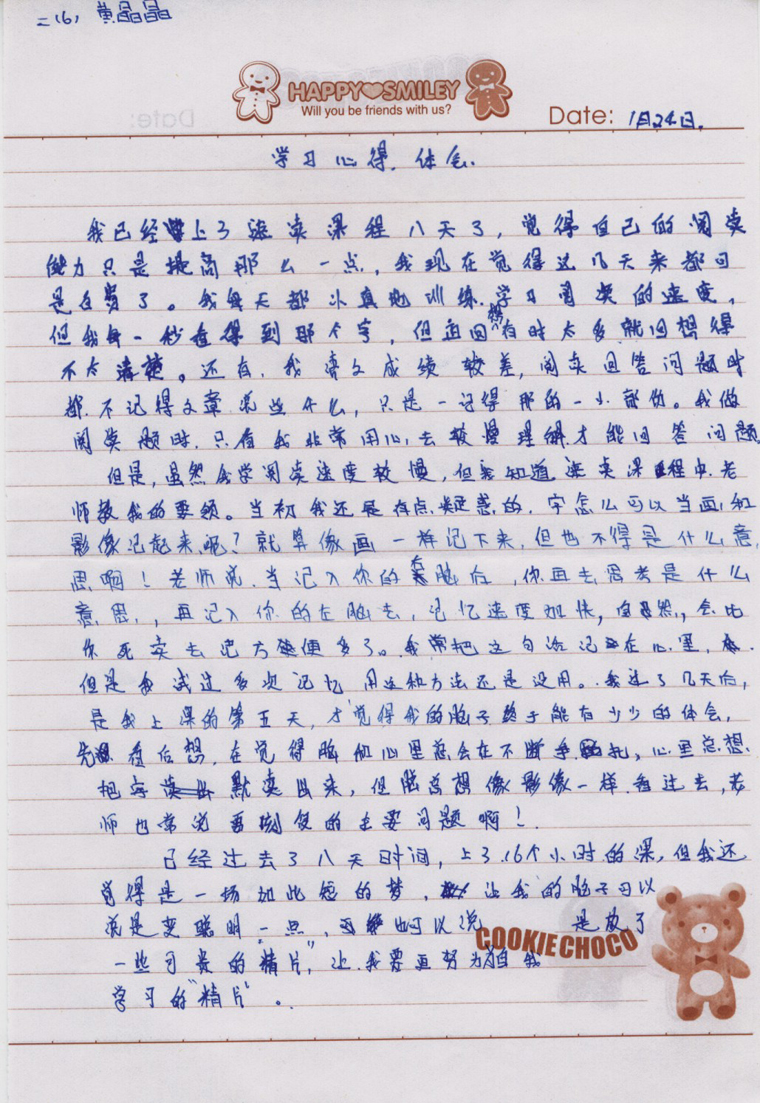 二(6) 黄晶晶
HAPPY SMILEY
Will you be friends with us?
Date: 1月24日.
学习心得.体会.
我已经上了速读课程八天了,觉得自己的阅读
能力只是提高那么一点,我现在觉得这几天来都可
是白费了。我每天都认真地训练.学习阅读的速度,
但我每一秒看得到那个字,但画因想有时太多就回想得
不太清楚。还有.我语文成绩较差,阅读回答问题时
都不记得文章说些什么,只是一记得那的一小部份。我做
阅读题时.只有我非常用心去较慢理解才能回答问题
但是,虽然我学阅读速度较慢,但我知道速读课程中老
师教我的要领。当初我还是有点疑惑的.字怎么可以当画和
影像记起来呢?就算像画一样记下来,但也不得是什么意
思啊!老师说.当记入你的右脑后,你再去思考是什么
意思.,再记入你的左脑去,记忆速度加快,自然,会比
你死读去记方便多了。我常把这句话记在心里,
但是我试过多次记忆用这种方法还是没用。我过了几天后,
是我上课的第五天,才觉得我的脑子终于能有少少的体会,
先看后想.在觉得脑和心里总会在不断争扎,心里总想
把字默读出来,但脑总想像影像一样看过去,老
师也常说要恢复的主要问题啊!
已经过去了八天时间,上了.16个小时的课,但我还
觉得是一场如此短的梦,让我的脑子可以
说是变聪明一点,也可以说 是放了
一些可贵的"精片",让我要更努力
学习的"精片"。
COOKIE CHOCO